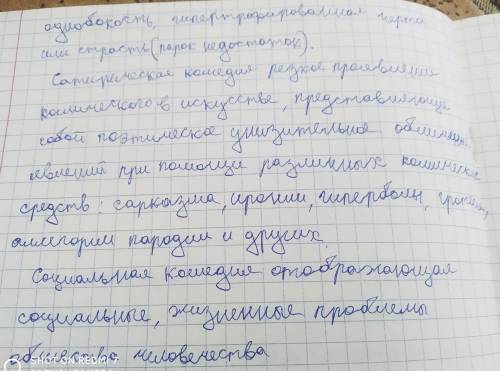 однобокость, гипертрофированная черта
или страсть (порок недостаток).
Сатирическая комедия резкое проявление
комического в искусстве, представляюще
собой поэтическое унизительное обличен
явлений при помощи различных комическ
средств: сарказма, иронии, гиперболы, гротеск,
аллегории пародии и других.
Социальная комедия отображающая
социальные, жизненные проблемы
общества человечества
SHOT ON REDMI 7